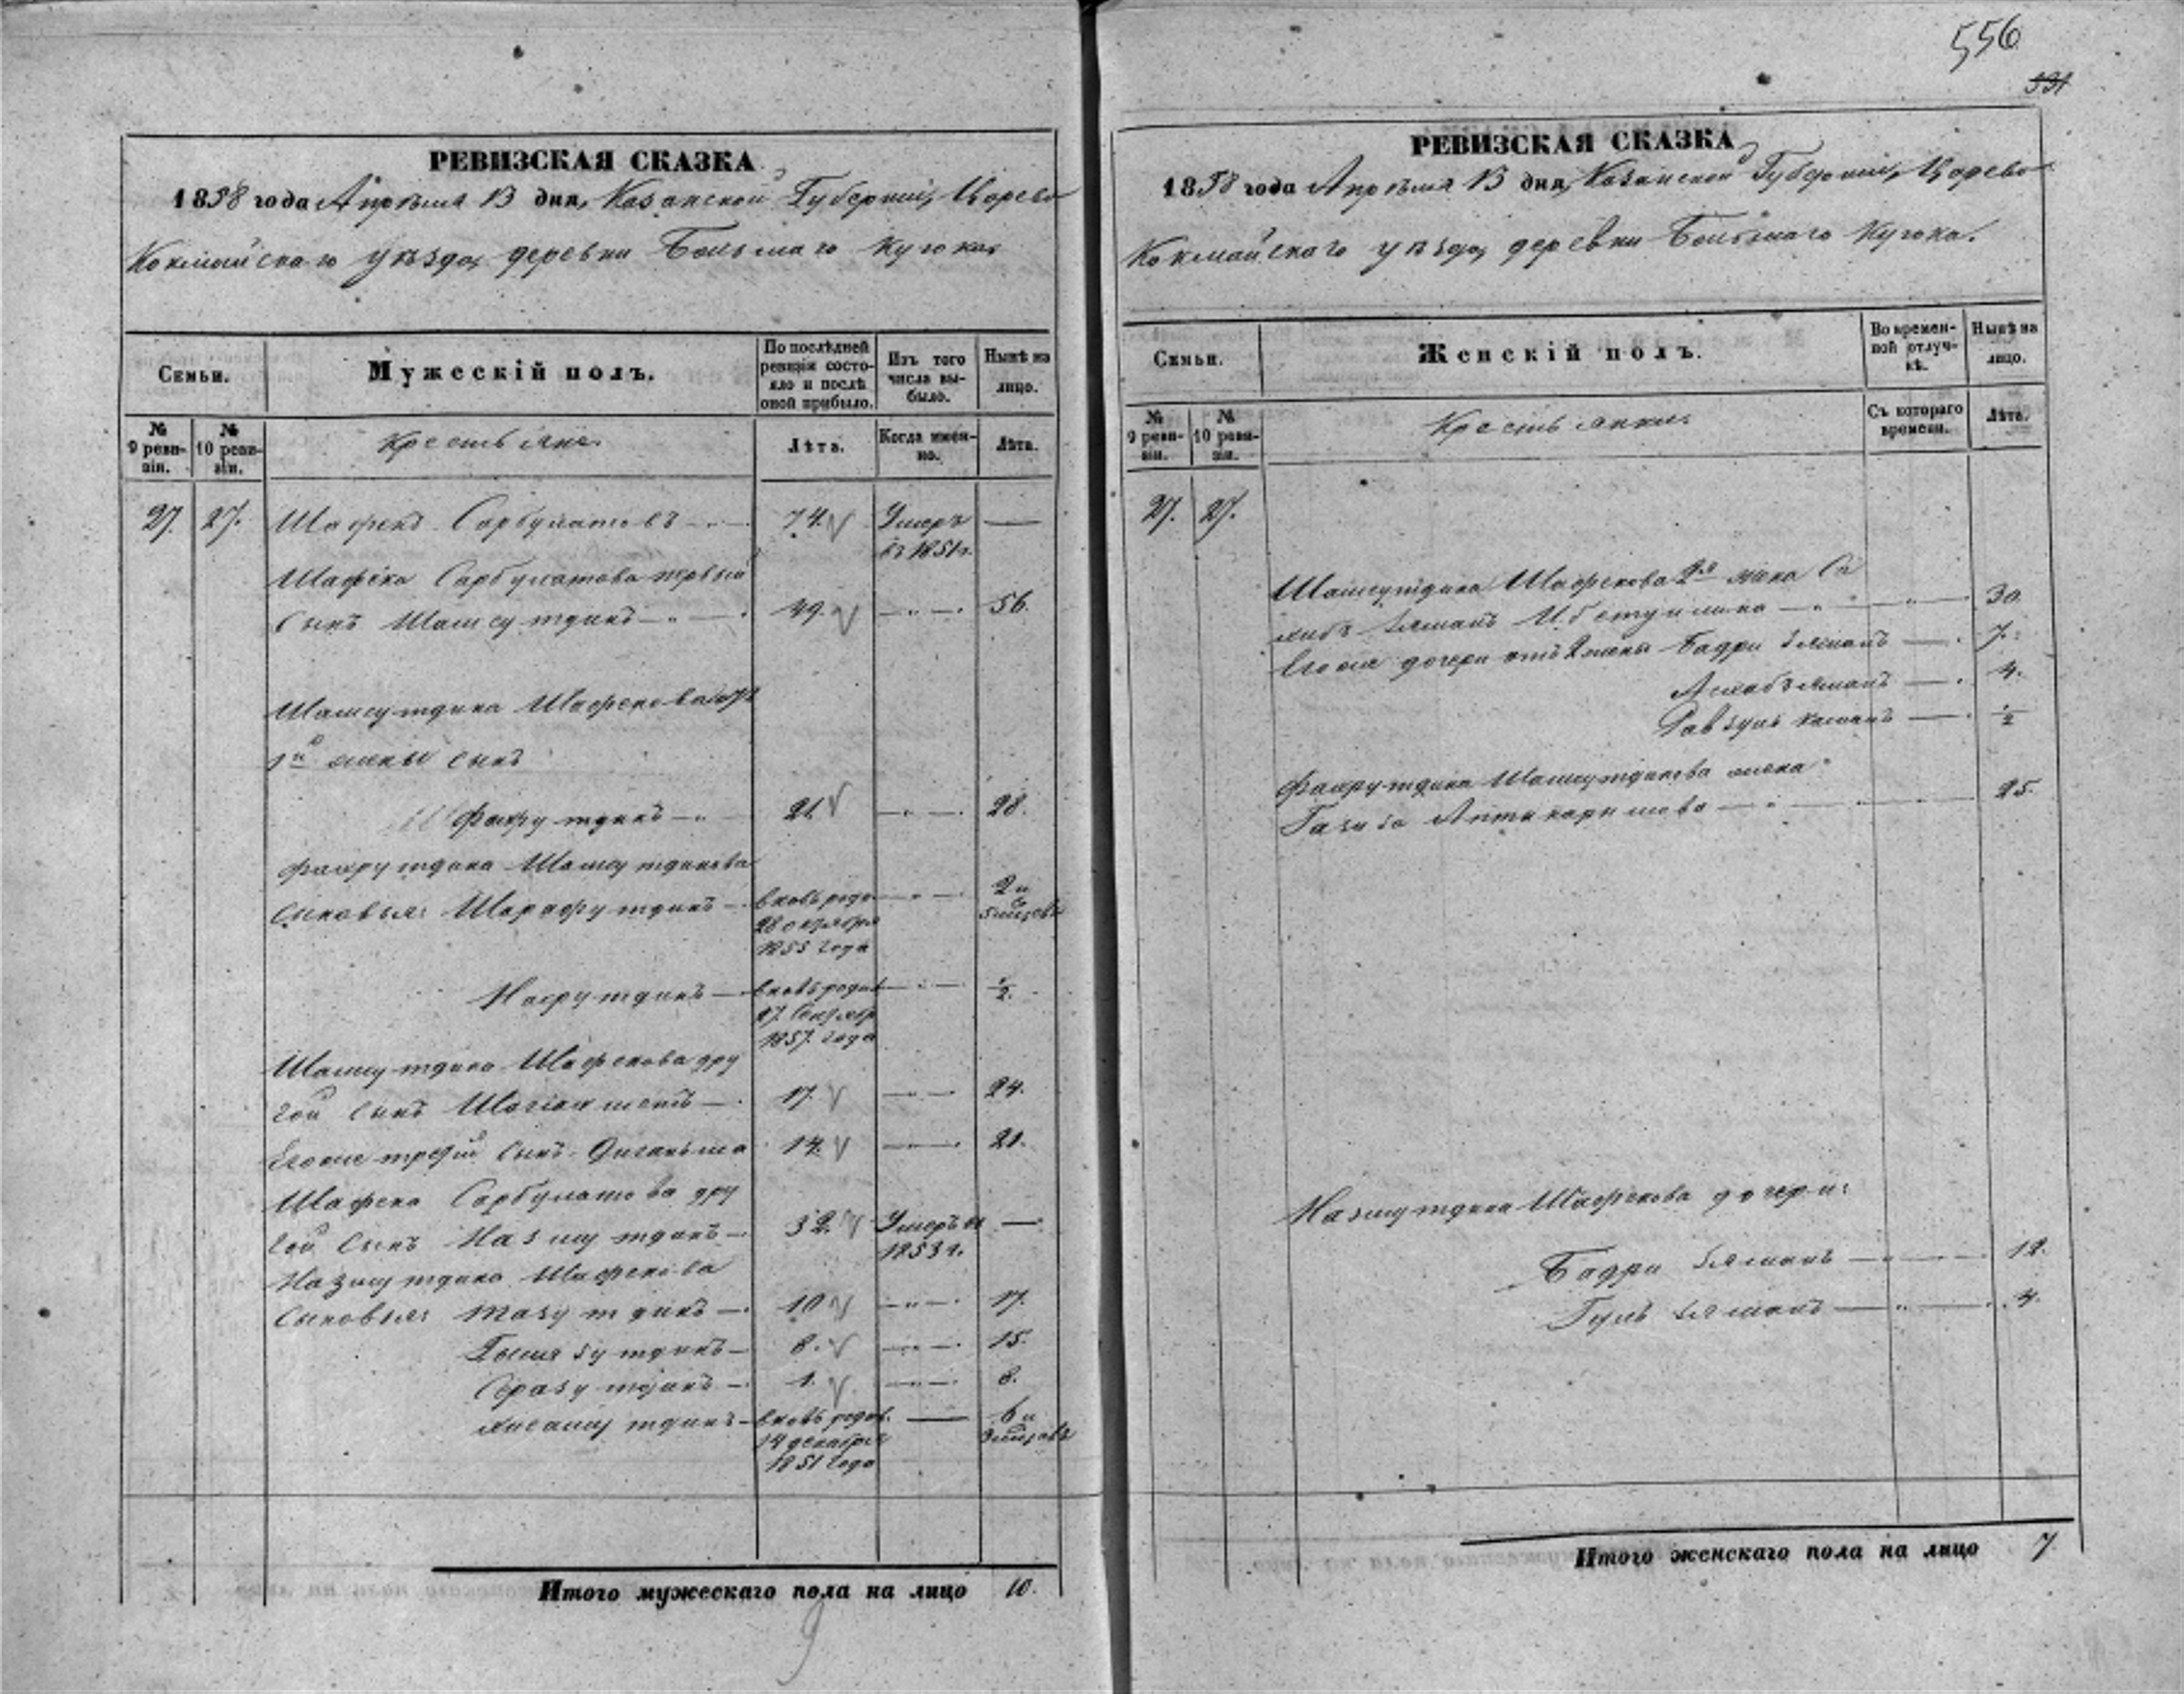 556
531
РЕВИЗСКАЯ СКАЗКА
1858 года Апрѣля 13 дня, Казанской Губерніи, Царево
Кокшайскаго уѣзда, деревни Большаго Кугока
Семьи.
Мужескій полъ.
По послѣдней ревизіи состояло и послѣ оной прибыло.
Изъ того числа выбыло.
Нынѣ на лицо.
№ 9 ревизіи.
№ 10 ревизіи.
Крестьяне.
Лѣта.
Когда именно.
Лѣта.
27. 27. Шафекъ Сарбулатовъ 74. Умеръ —
въ 1851 г.
Шафека Сарбулатова первый
сынъ Шамсутдинъ 49. 56.
Шамсутдина Шафекова отъ
1й жены сынъ
Фахрутдинъ 21 28.
Фахрутдина Шамсутдинова
сыновья: Шарафутдинъ вновь родил 2 и
28 октября 5 мѣсяцовъ
1855 года
Насрутдинъ вновь родил ½.
17 Сентября
1857 года
Шамсутдина Шафекова дру
гой сынъ 17. 24.
Его же третій сынъ 14 21.
Шафека Сарбулатова дру
гой сынъ Назмутдинъ 32. Умеръ въ —
1853 г.
Назмутдина Шафекова
сыновья: Тазутдинъ 10 17.
8. 15.
1. 8.
вновь родил. 6 и
14 декабря 3 мѣсяцовъ
1851 года
Итого мужескаго пола на лицо 10.
9
РЕВИЗСКАЯ СКАЗКА
1858 года Апрѣля 13 дня, Казанской Губерніи, Царево
Кокшайскаго уѣзда, деревни Большаго Кугока.
Семьи.
Женскій полъ.
Во временной отлучкѣ.
Нынѣ на лицо.
№ 9 ревизіи.
№ 10 ревизіи.
Крестьянки.
Съ котораго времени.
Лѣта.
27. 27.
Шамсутдина Шафекова 2я жена Са
30.
Его же дочери отъ 2 жены Бадри 7.
4.
½
Фахрутдина Шамсутдинова жена
Газиза 25.
Назмутдина Шафекова дочери:
Бадри 12.
Гуль 4.
Итого женскаго пола на лицо 7